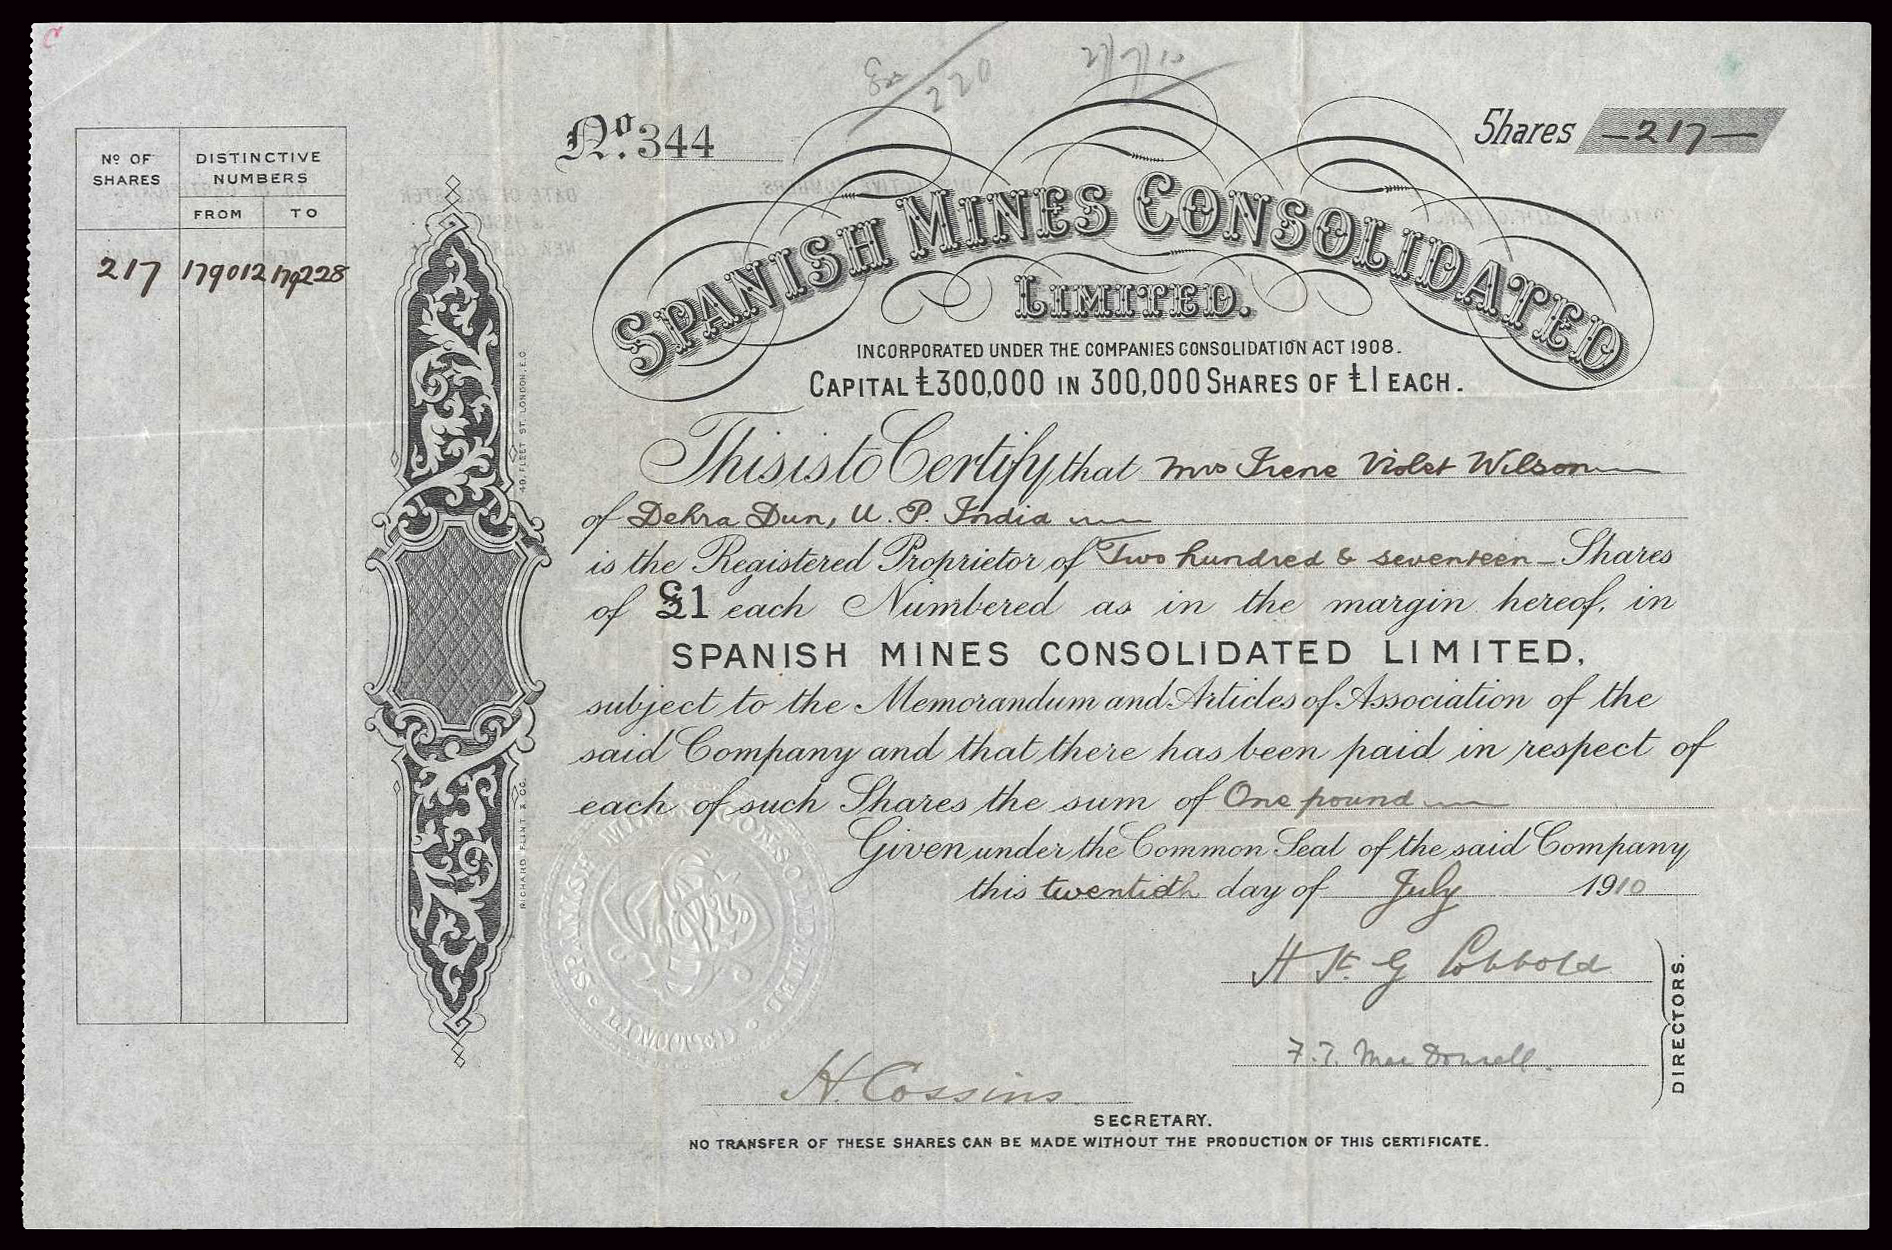 2/7/10
220
No. 344
Shares —217—
SPANISH MINES CONSOLIDATED
LIMITED.
INCORPORATED UNDER THE COMPANIES CONSOLIDATION ACT 1908.
CAPITAL £300,000 IN 300,000 SHARES OF £1 EACH.
Nº OF SHARES
DISTINCTIVE NUMBERS
FROM TO
217 179012 179228
This is to Certify that Mrs Irene Violet Wilson
of Dehra Dun, U. P. India
is the Registered Proprietor of Two hundred & seventeen — Shares
of £1 each Numbered as in the margin hereof, in
SPANISH MINES CONSOLIDATED LIMITED,
subject to the Memorandum and Articles of Association of the
said Company and that there has been paid in respect of
each of such Shares the sum of One pound
Given under the Common Seal of the said Company
this twentieth day of July 1910
H St. G Cobbold
F. T. MacDonell
DIRECTORS.
H. Cossins
SECRETARY.
NO TRANSFER OF THESE SHARES CAN BE MADE WITHOUT THE PRODUCTION OF THIS CERTIFICATE.
RICHARD FLINT & CO. 49, FLEET ST. LONDON, E.C.
SPANISH MINES CONSOLIDATED LIMITED